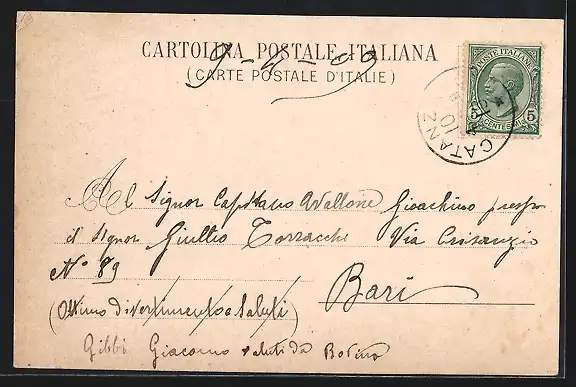 CARTOLINA POSTALE ITALIANA
(CARTE POSTALE D'ITALIE)
9-4-09
POSTE ITALIANE
5 CENTESIMI 5
CATANZ
Al Signor Capitano Avallone Gioachino presso
il Signor Giullio Torracche Via Crisanzio
N° 89
Bari
(Ottimo divertimento e Saluti)
Giacomo saluti da